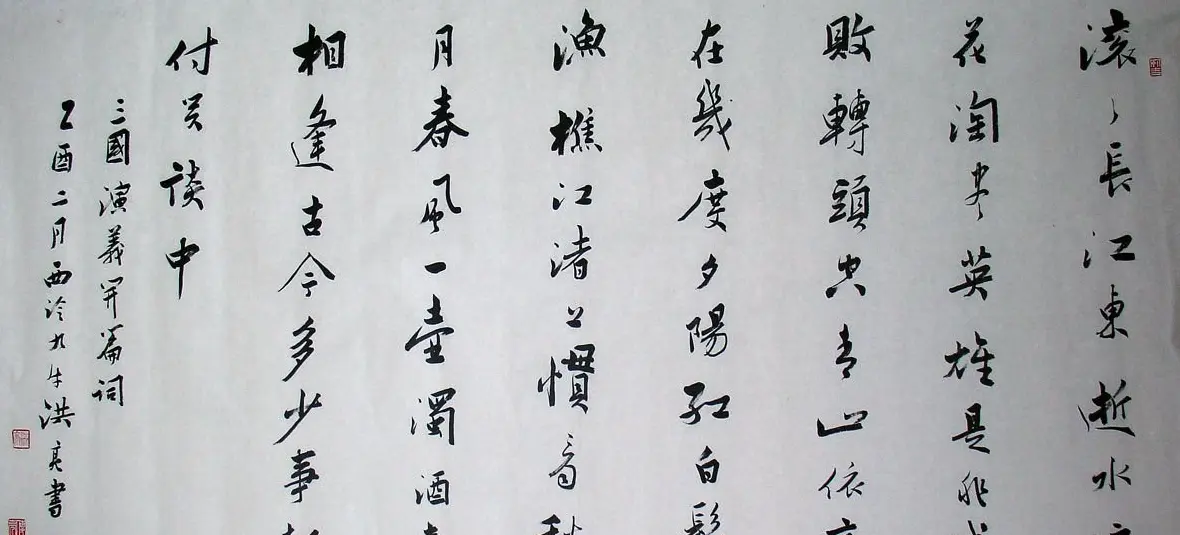 滚〻長江東逝水
花淘尽英雄是非
敗轉頭空青山依
在幾度夕陽紅白髮
漁樵江渚上慣看秋
月春風一壺濁酒
相逢古今多少事
付笑談中
三國演義開篇詞
乙酉二月西泠洪亮書